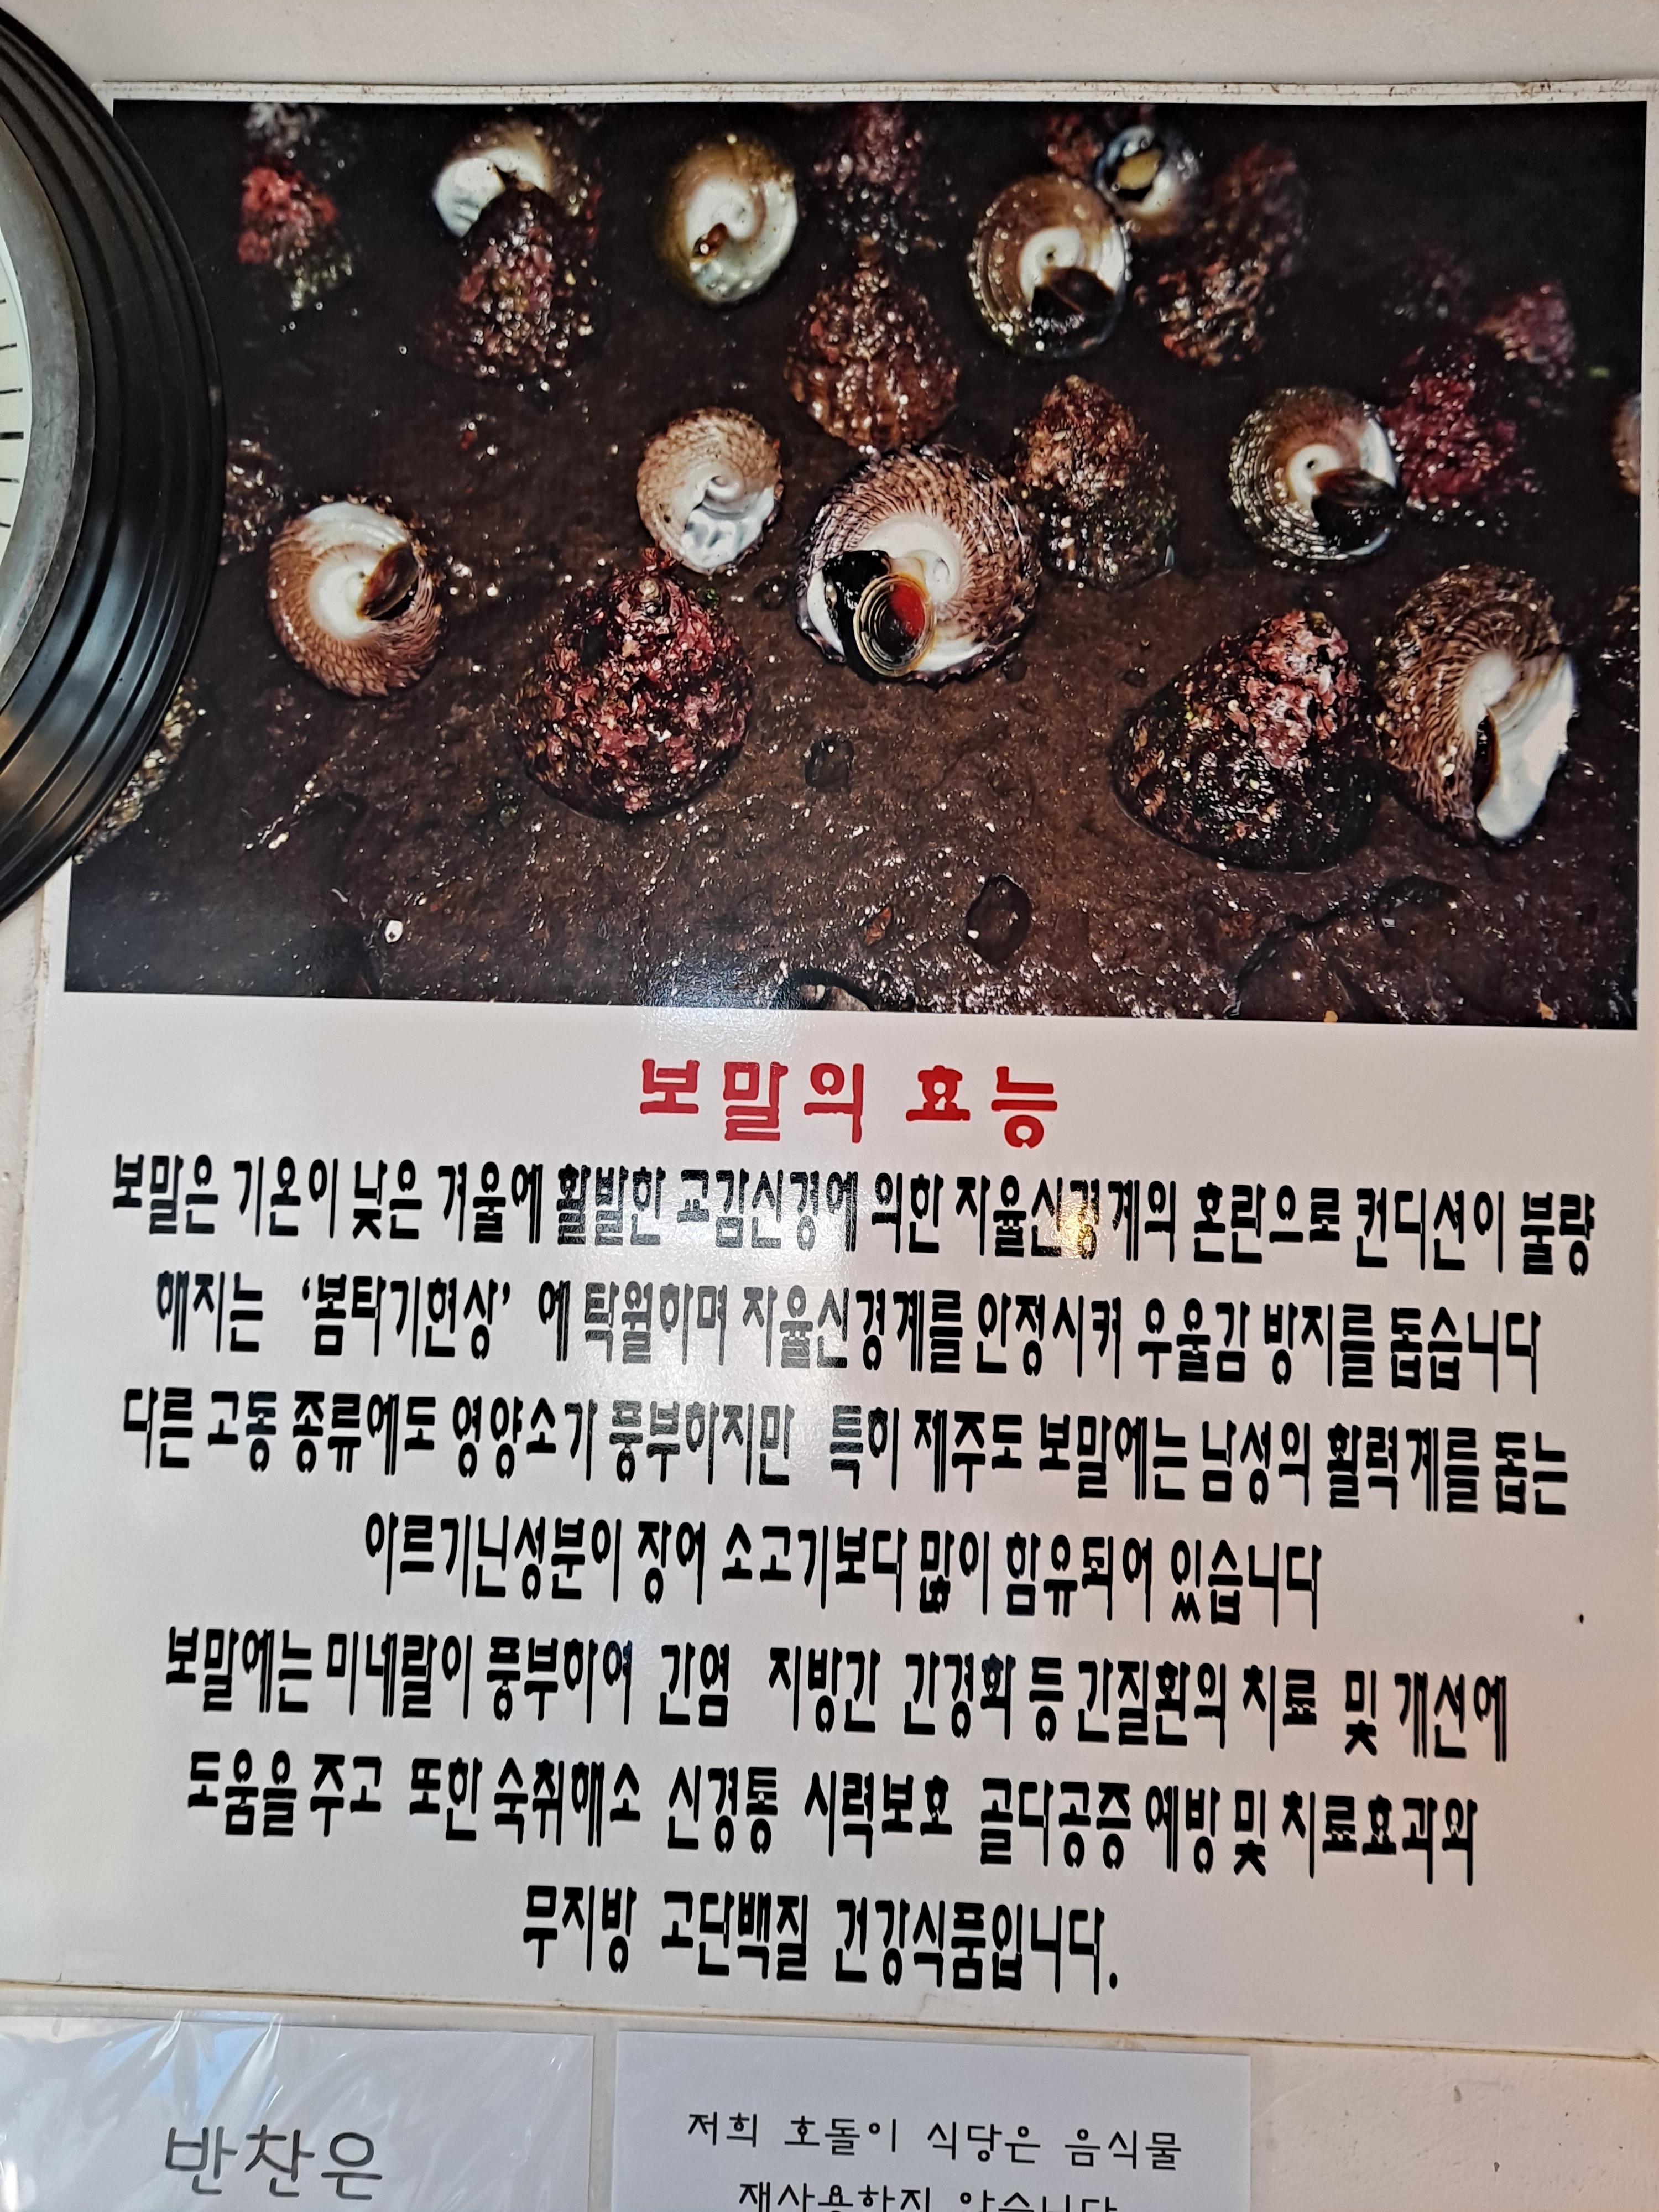 보말의 효능
보말은 기온이 낮은 겨울에 활발한 교감신경에 의한 자율신경계의 혼란으로 컨디션이 불량
해지는 ‘봄타기현상’ 에 탁월하며 자율신경계를 안정시켜 우울감 방지를 돕습니다
다른 고동 종류에도 영양소가 풍부하지만 특히 제주도 보말에는 남성의 활력계를 돕는
아르기닌성분이 장어 소고기보다 많이 함유되어 있습니다
보말에는 미네랄이 풍부하여 간염 지방간 간경화 등 간질환의 치료 및 개선에
도움을 주고 또한 숙취해소 신경통 시력보호 골다공증 예방 및 치료효과와
무지방 고단백질 건강식품입니다.
반찬은
저희 호돌이 식당은 음식물
재사용하지 않습니다